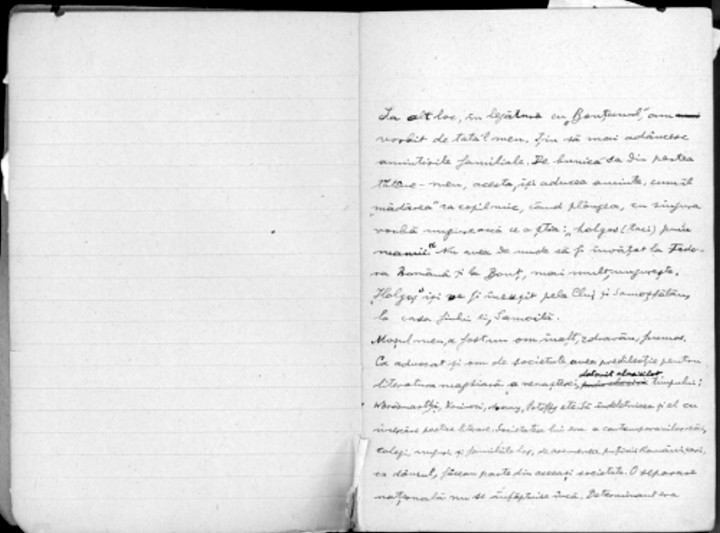 In alt loc, în legătură cu „Bonțeanul", am
vorbit de tatăl meu. Țin să mai adâncesc
amintirile familiale. De bunica-sa din partea
tatălui-meu, acesta, își aducea aminte, cum îl
„mădărea" ca copil mic, când plângea, cu singura
vorbă ungurească ce o știa: „halgas (taci)
". Nu avea de unde să fi învățat la
Română și la Bonț, mai mult, ungurește.
„Halgas" își va fi însușit pela Cluj și
la casa fiului ei, Samoilă.
Moșul meu, a fost un om înalt, zdravăn, frumos.
Ca advocat și om de societate avea predilecție pentru
literatura maghiară a renașterii, datorit clasicilor timpului:
Vörösmarthy, Arany, Petőffy etc. Să îndeletnicea și el cu
încercări poetice literare. Societatea lui era a contemporanilor săi,
colegi unguri și familiile lor, de asemenea puținii Români, cari,
ca dânsul, făceau parte din aceeași societate. O separare
națională nu se înfăptuise încă. Determinant era